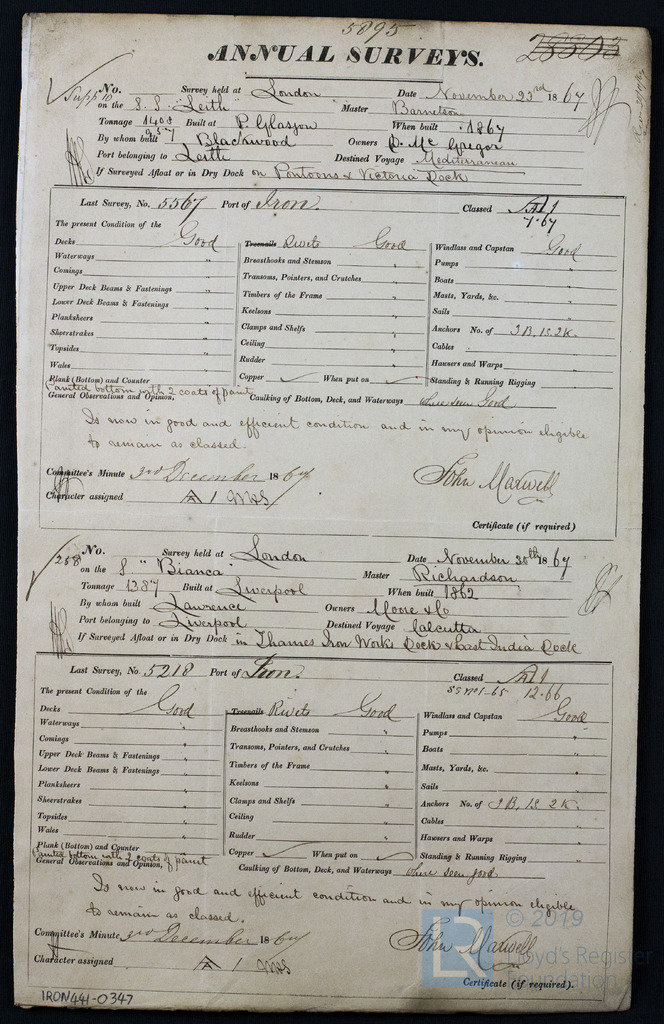 5895
ANNUAL SURVEYS.
28803
Supp 10
No. Survey held at London Date November 23rd 1867
on the S.S. "Leith" Master Barnetson
Tonnage 1408 Built at P. Glasgow When built 1867
957
By whom built Blackwood Owners D. McGregor
Port belonging to Leith Destined Voyage Mediterranean
If Surveyed Afloat or in Dry Dock on Pontoons & Victoria Dock
Last Survey, No. 5567 Port of Iron. Classed A1
7.67
The present Condition of the
Decks Good Treenails Rivets Good Windlass and Capstan Good
Waterways " Breasthooks and Stemson " Pumps "
Comings " Transoms, Pointers, and Crutches " Boats "
Upper Deck Beams & Fastenings " Timbers of the Frame " Masts, Yards, &c. "
Lower Deck Beams & Fastenings " Keelsons " Sails "
Planksheers " Clamps and Shelfs " Anchors No. of 3B, 1S, 2K.
Sheerstrakes " Ceiling " Cables "
Topsides " Rudder " Hawsers and Warps "
Wales " Copper ✓ When put on ✓ Standing & Running Rigging "
Plank (Bottom) and Counter "
Painted bottom with 2 coats of paint
General Observations and Opinion, Caulking of Bottom, Deck, and Waterways where seen Good
Is now in good and efficient condition and in my opinion eligible
to remain as classed.
Committee's Minute 3rd December 1867 John Maxwell
Character assigned A 1
Certificate (if required)
258
No. Survey held at London Date November 30th 1867
on the S "Bianca" Master Richardson
Tonnage 1387 Built at Liverpool When built 1862
By whom built Lawrence Owners Moore & Co
Port belonging to Liverpool Destined Voyage Calcutta
If Surveyed Afloat or in Dry Dock in Thames Iron Works Dock & East India Dock
Last Survey, No. 5218 Port of Iron. Classed A1
SS No1-65 12.66
The present Condition of the
Decks Good Treenails Rivets Good Windlass and Capstan Good
Waterways " Breasthooks and Stemson " Pumps "
Comings " Transoms, Pointers, and Crutches " Boats "
Upper Deck Beams & Fastenings " Timbers of the Frame " Masts, Yards, &c. "
Lower Deck Beams & Fastenings " Keelsons " Sails "
Planksheers " Clamps and Shelfs " Anchors No. of 3B, 1S, 2K.
Sheerstrakes " Ceiling " Cables "
Topsides " Rudder " Hawsers and Warps "
Wales " Copper ✓ When put on ✓ Standing & Running Rigging "
Plank (Bottom) and Counter "
Painted bottom with 2 coats of paint
General Observations and Opinion, Caulking of Bottom, Deck, and Waterways where seen good
Is now in good and efficient condition and in my opinion eligible
to remain as classed.
Committee's Minute 3rd December 1867 John Maxwell
Character assigned A 1
Certificate (if required).
© 2019
Lloyd's Register
Foundation
IRON441-0347